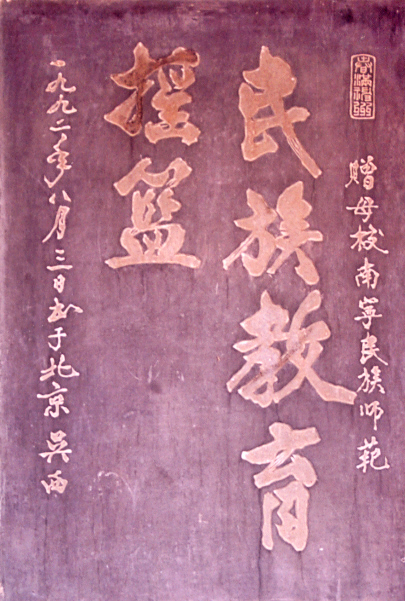 贈母校南寧民族师範
民族教育
摇籃
一九九二年八月三日书于北京 吳西